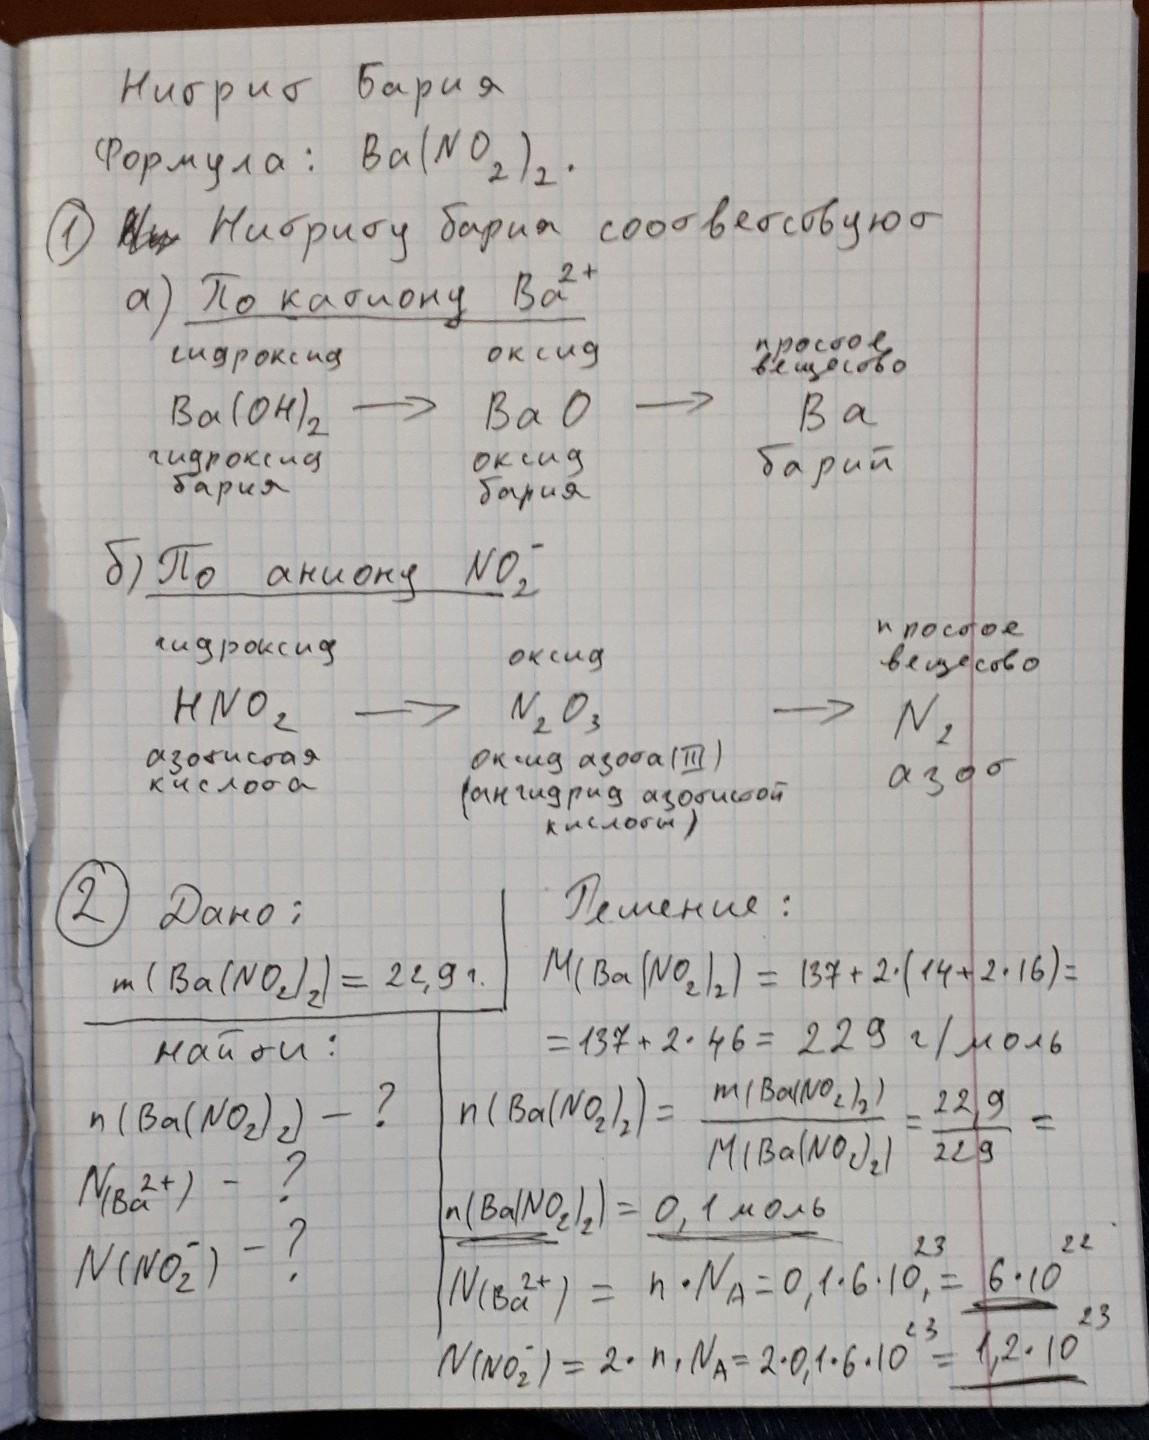 Нитрит Бария
Формула: Ba(NO₂)₂.
① Нитриту бария соответствуют
а) По катиону Ba²⁺
гидроксид оксид простое вещество
Ba(OH)₂ → BaO → Ba
гидроксид бария оксид бария барий
б) По аниону NO₂⁻
гидроксид оксид простое вещество
HNO₂ → N₂O₃ → N₂
азотистая кислота оксид азота (III) азот
(ангидрид азотистой кислоты)
② Дано:
m(Ba(NO₂)₂) = 22,9 г.
Найти:
n(Ba(NO₂)₂) - ?
N(Ba²⁺) - ?
N(NO₂⁻) - ?
Решение:
M(Ba(NO₂)₂) = 137+2·(14+2·16)=
=137+2·46= 229 г/моль
n(Ba(NO₂)₂) = m(Ba(NO₂)₂) / M(Ba(NO₂)₂) = 22,9 / 229 =
n(Ba(NO₂)₂) = 0,1 моль
N(Ba²⁺) = n·N_A = 0,1·6·10²³ = 6·10²²
N(NO₂⁻) = 2·n·N_A = 2·0,1·6·10²³ = 1,2·10²³